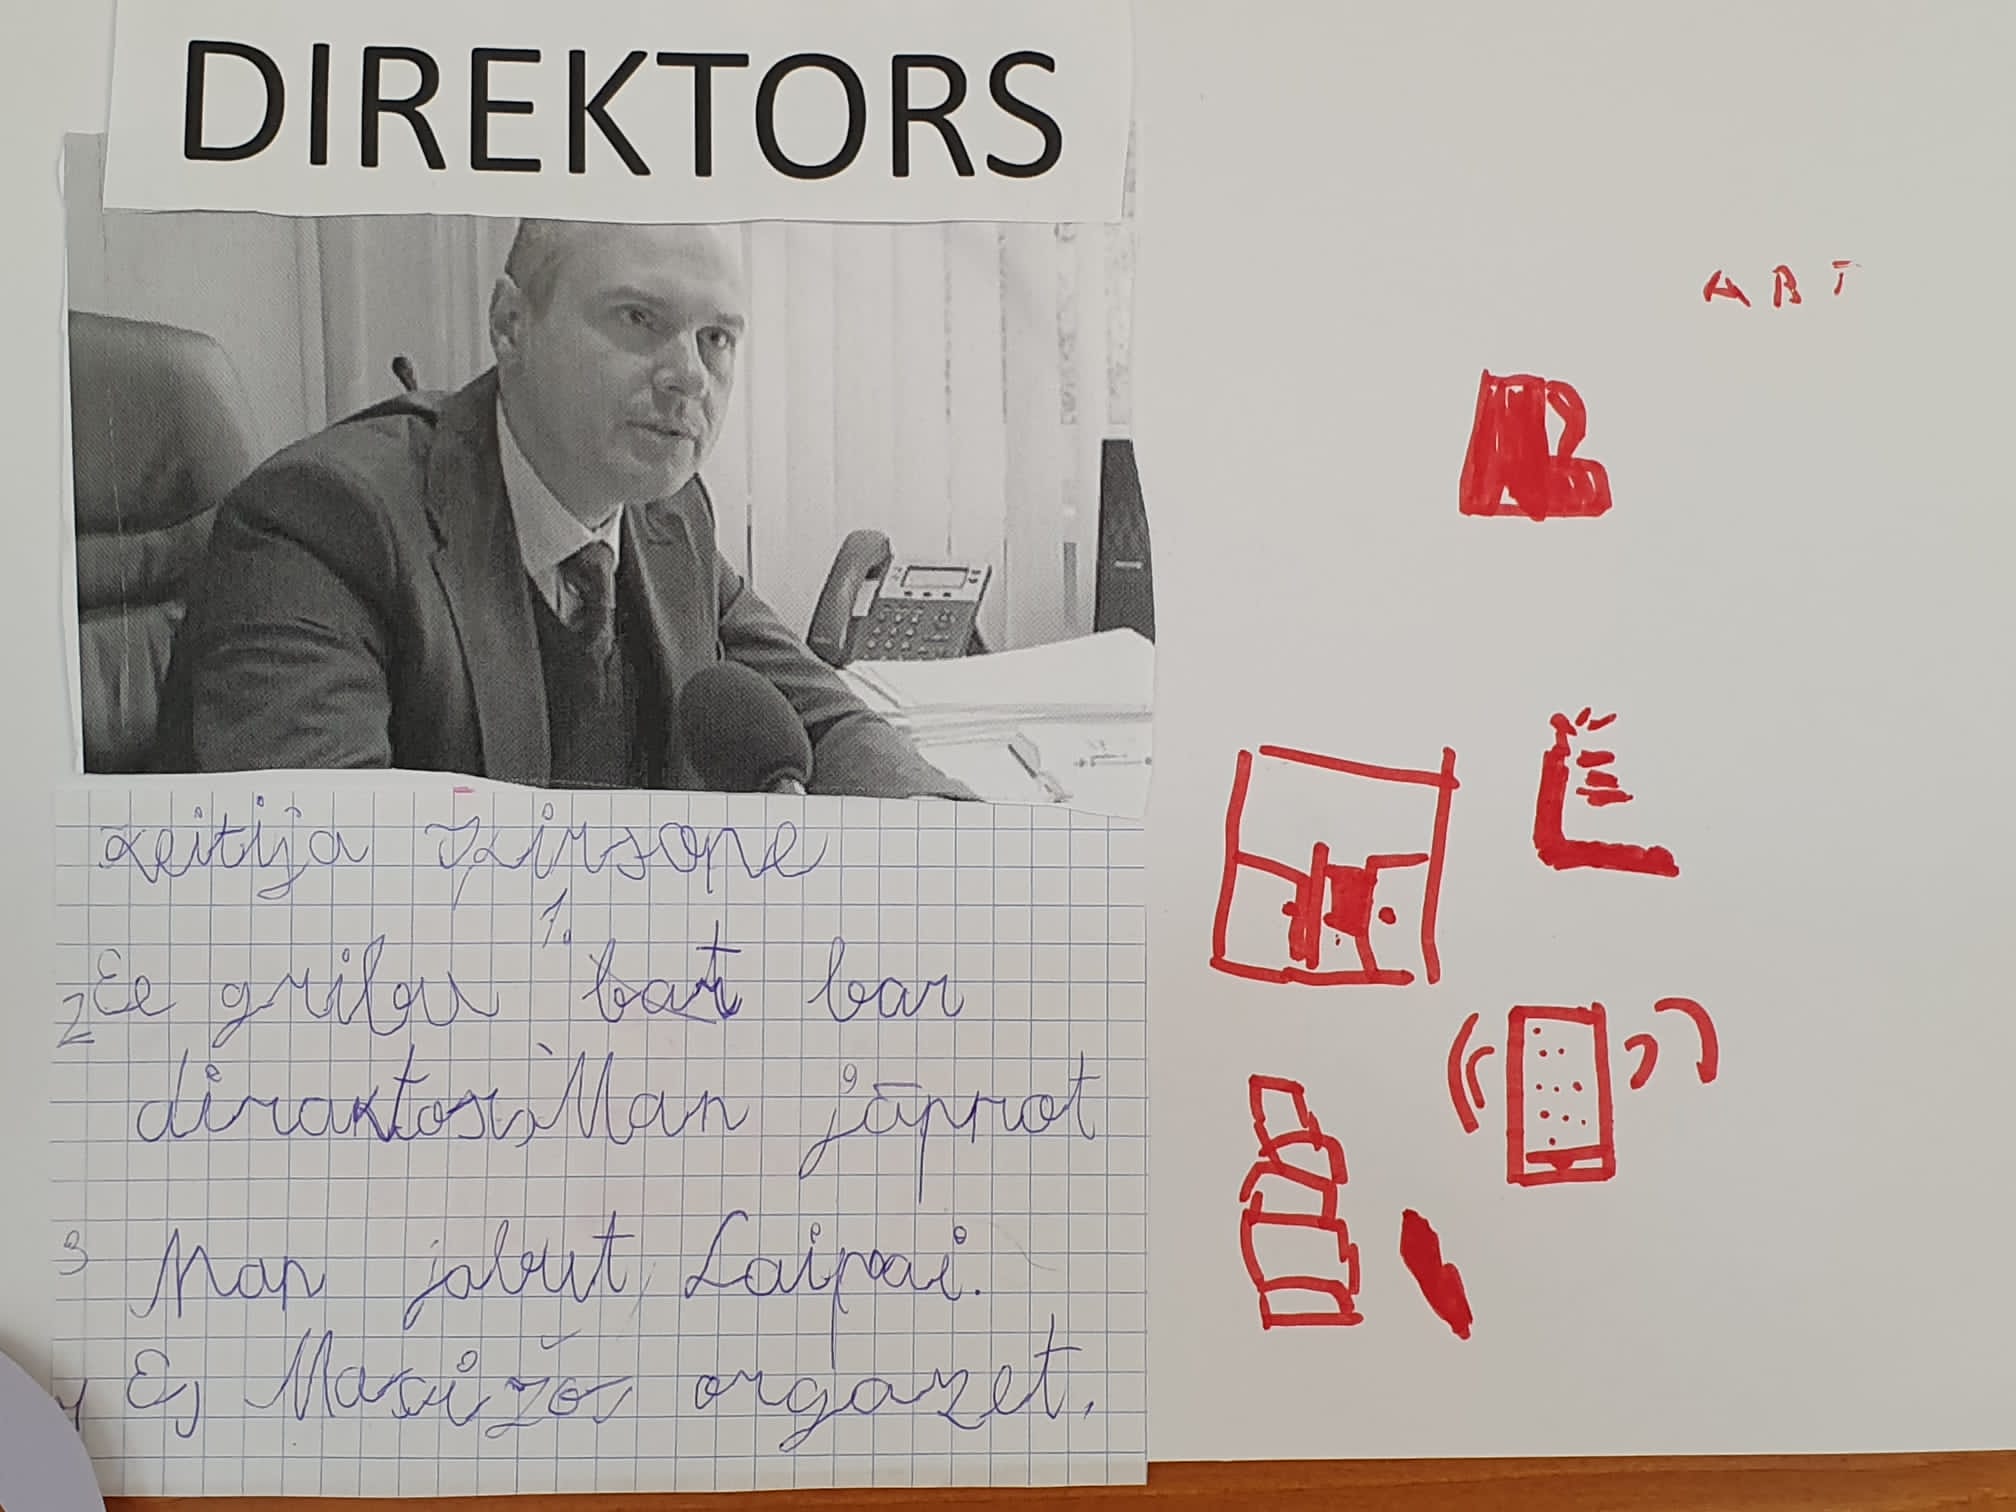 DIREKTORS
A B T
Keitija Ķirsone
1.
2 Es gribu būt bar
diraktors, Man jāprot
3 Man jabut Laipnai.
4 Es Macižos orgazet.